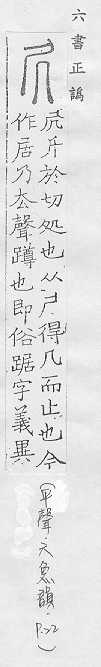 六書正譌
凥斤於切処也从尸得几而止也今
作居乃厺聲蹲也即俗踞字義異
(平聲・六魚韻・P.22)